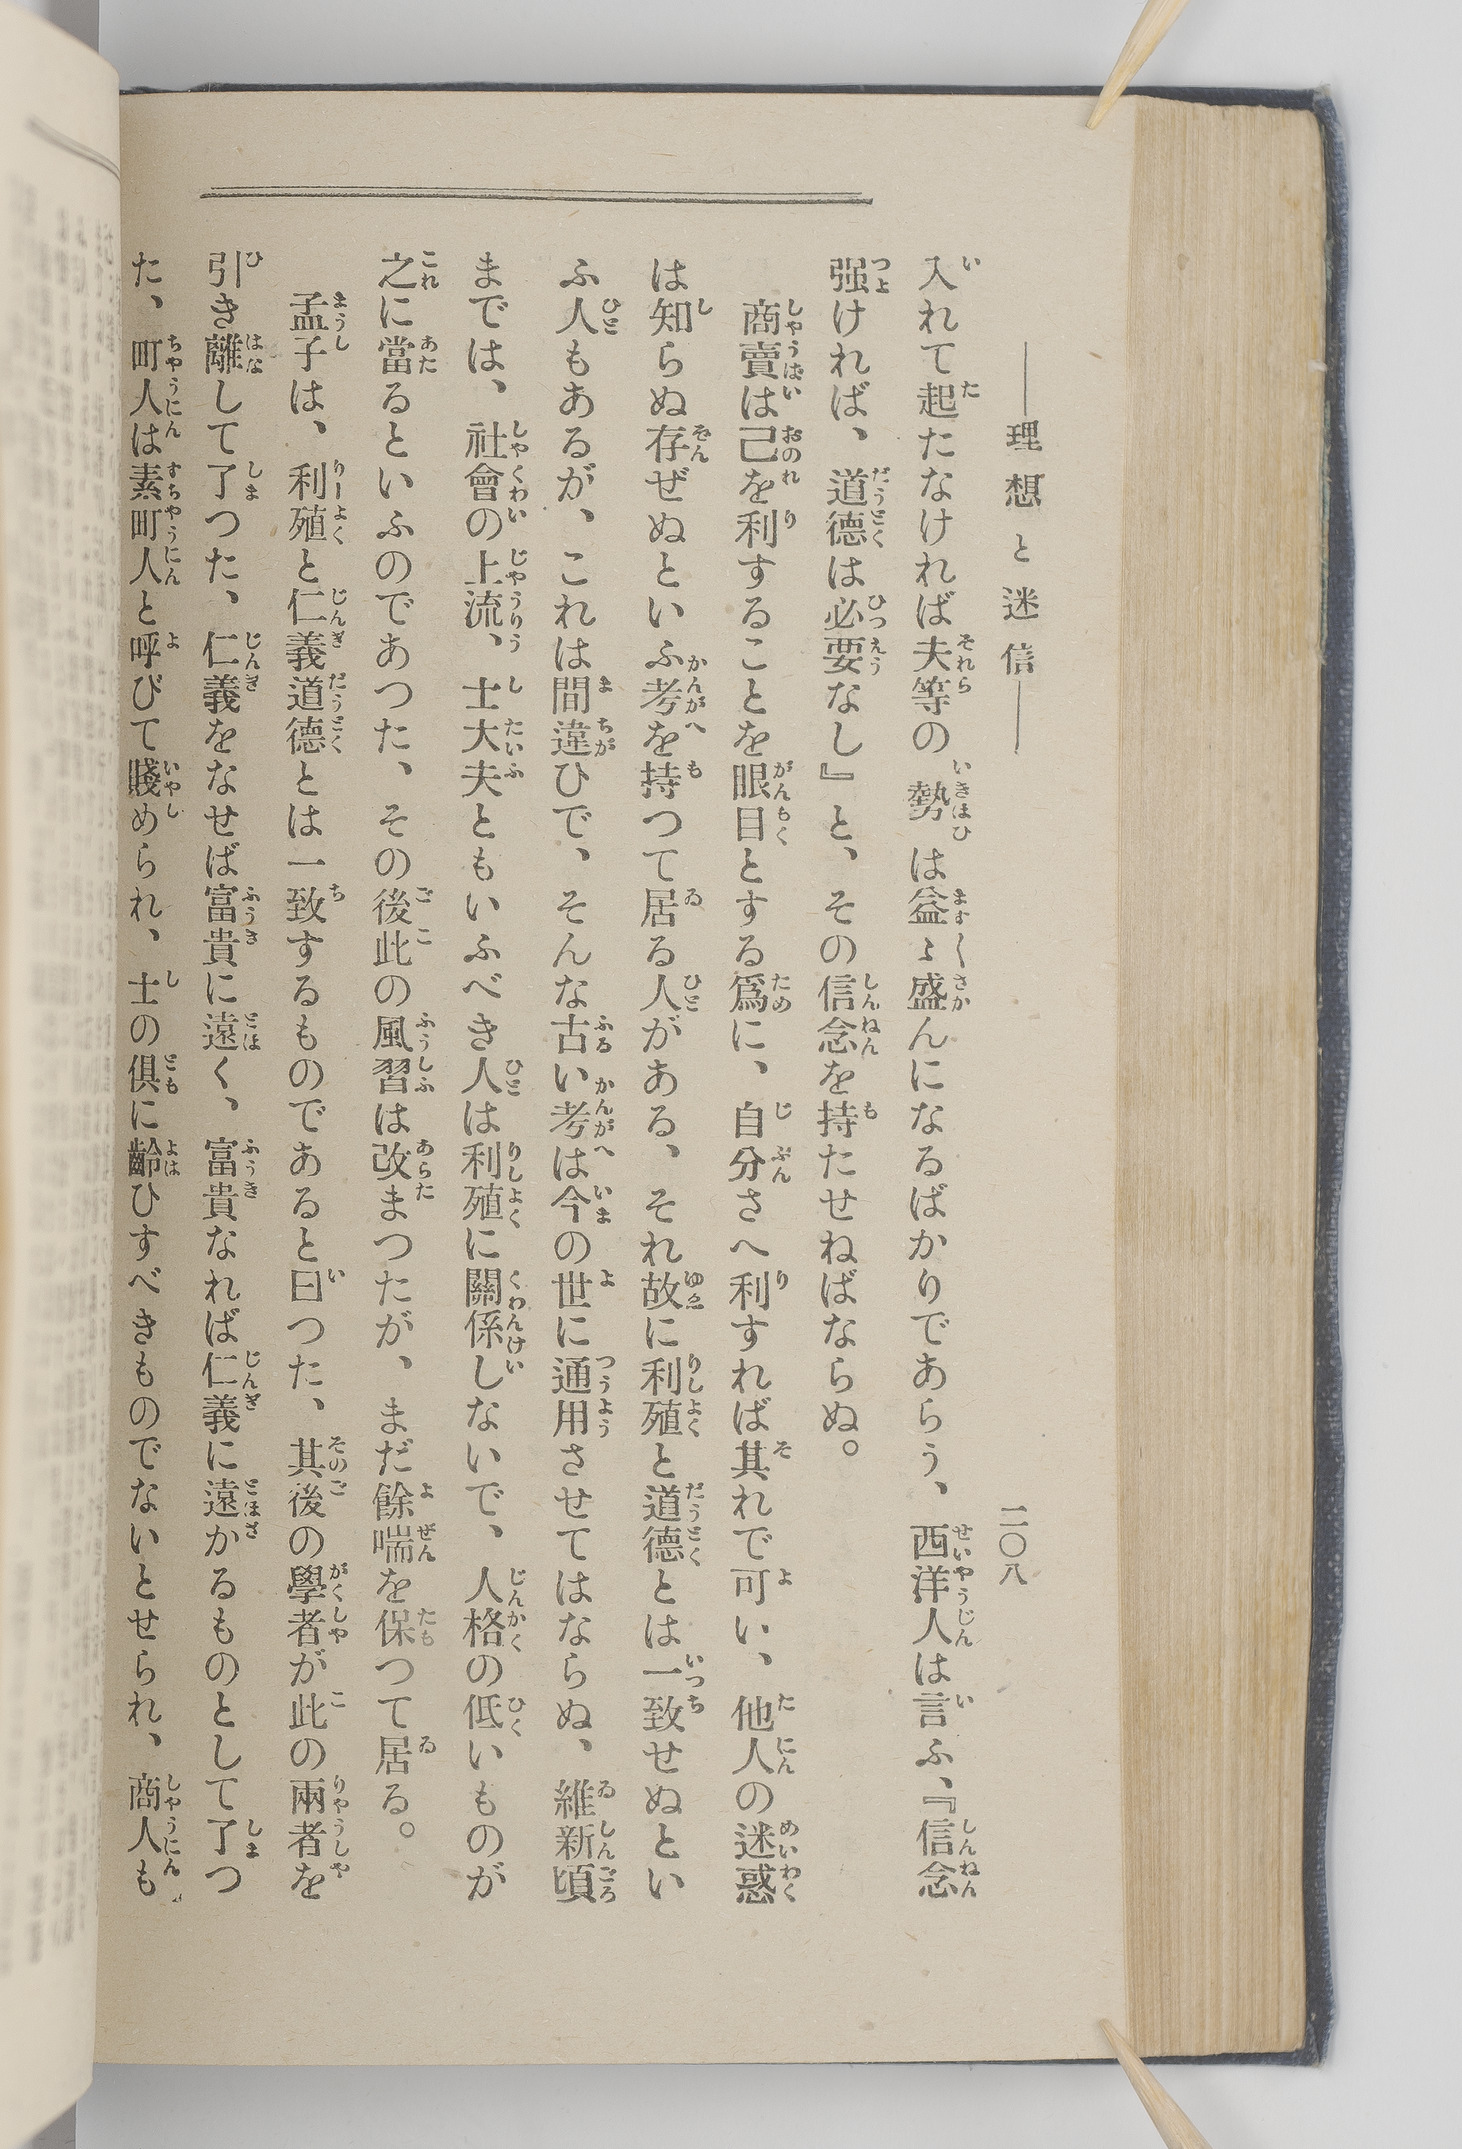 ――理想と迷信―― 二〇八
入れて起たなければ夫等の勢は益〻盛んになるばかりであらう、西洋人は言ふ、『信念
强ければ、道德は必要なし』と、その信念を持たせねばならぬ。
商賣は己を利することを眼目とする爲に、自分さへ利すれば其れで可い、他人の迷惑
は知らぬ存ぜぬといふ考を持つて居る人がある、それ故に利殖と道德とは一致せぬとい
ふ人もあるが、これは間違ひで、そんな古い考は今の世に通用させてはならぬ、維新頃
までは、社會の上流、士大夫ともいふべき人は利殖に關係しないで、人格の低いものが
之に當るといふのであつた、その後此の風習は改まつたが、まだ餘喘を保つて居る。
孟子は、利殖と仁義道德とは一致するものであると曰つた、其後の學者が此の兩者を
引き離して了つた、仁義をなせば富貴に遠く、富貴なれば仁義に遠かるものとして了つ
た、町人は素町人と呼びて賤められ、士の俱に齡ひすべきものでないとせられ、商人も